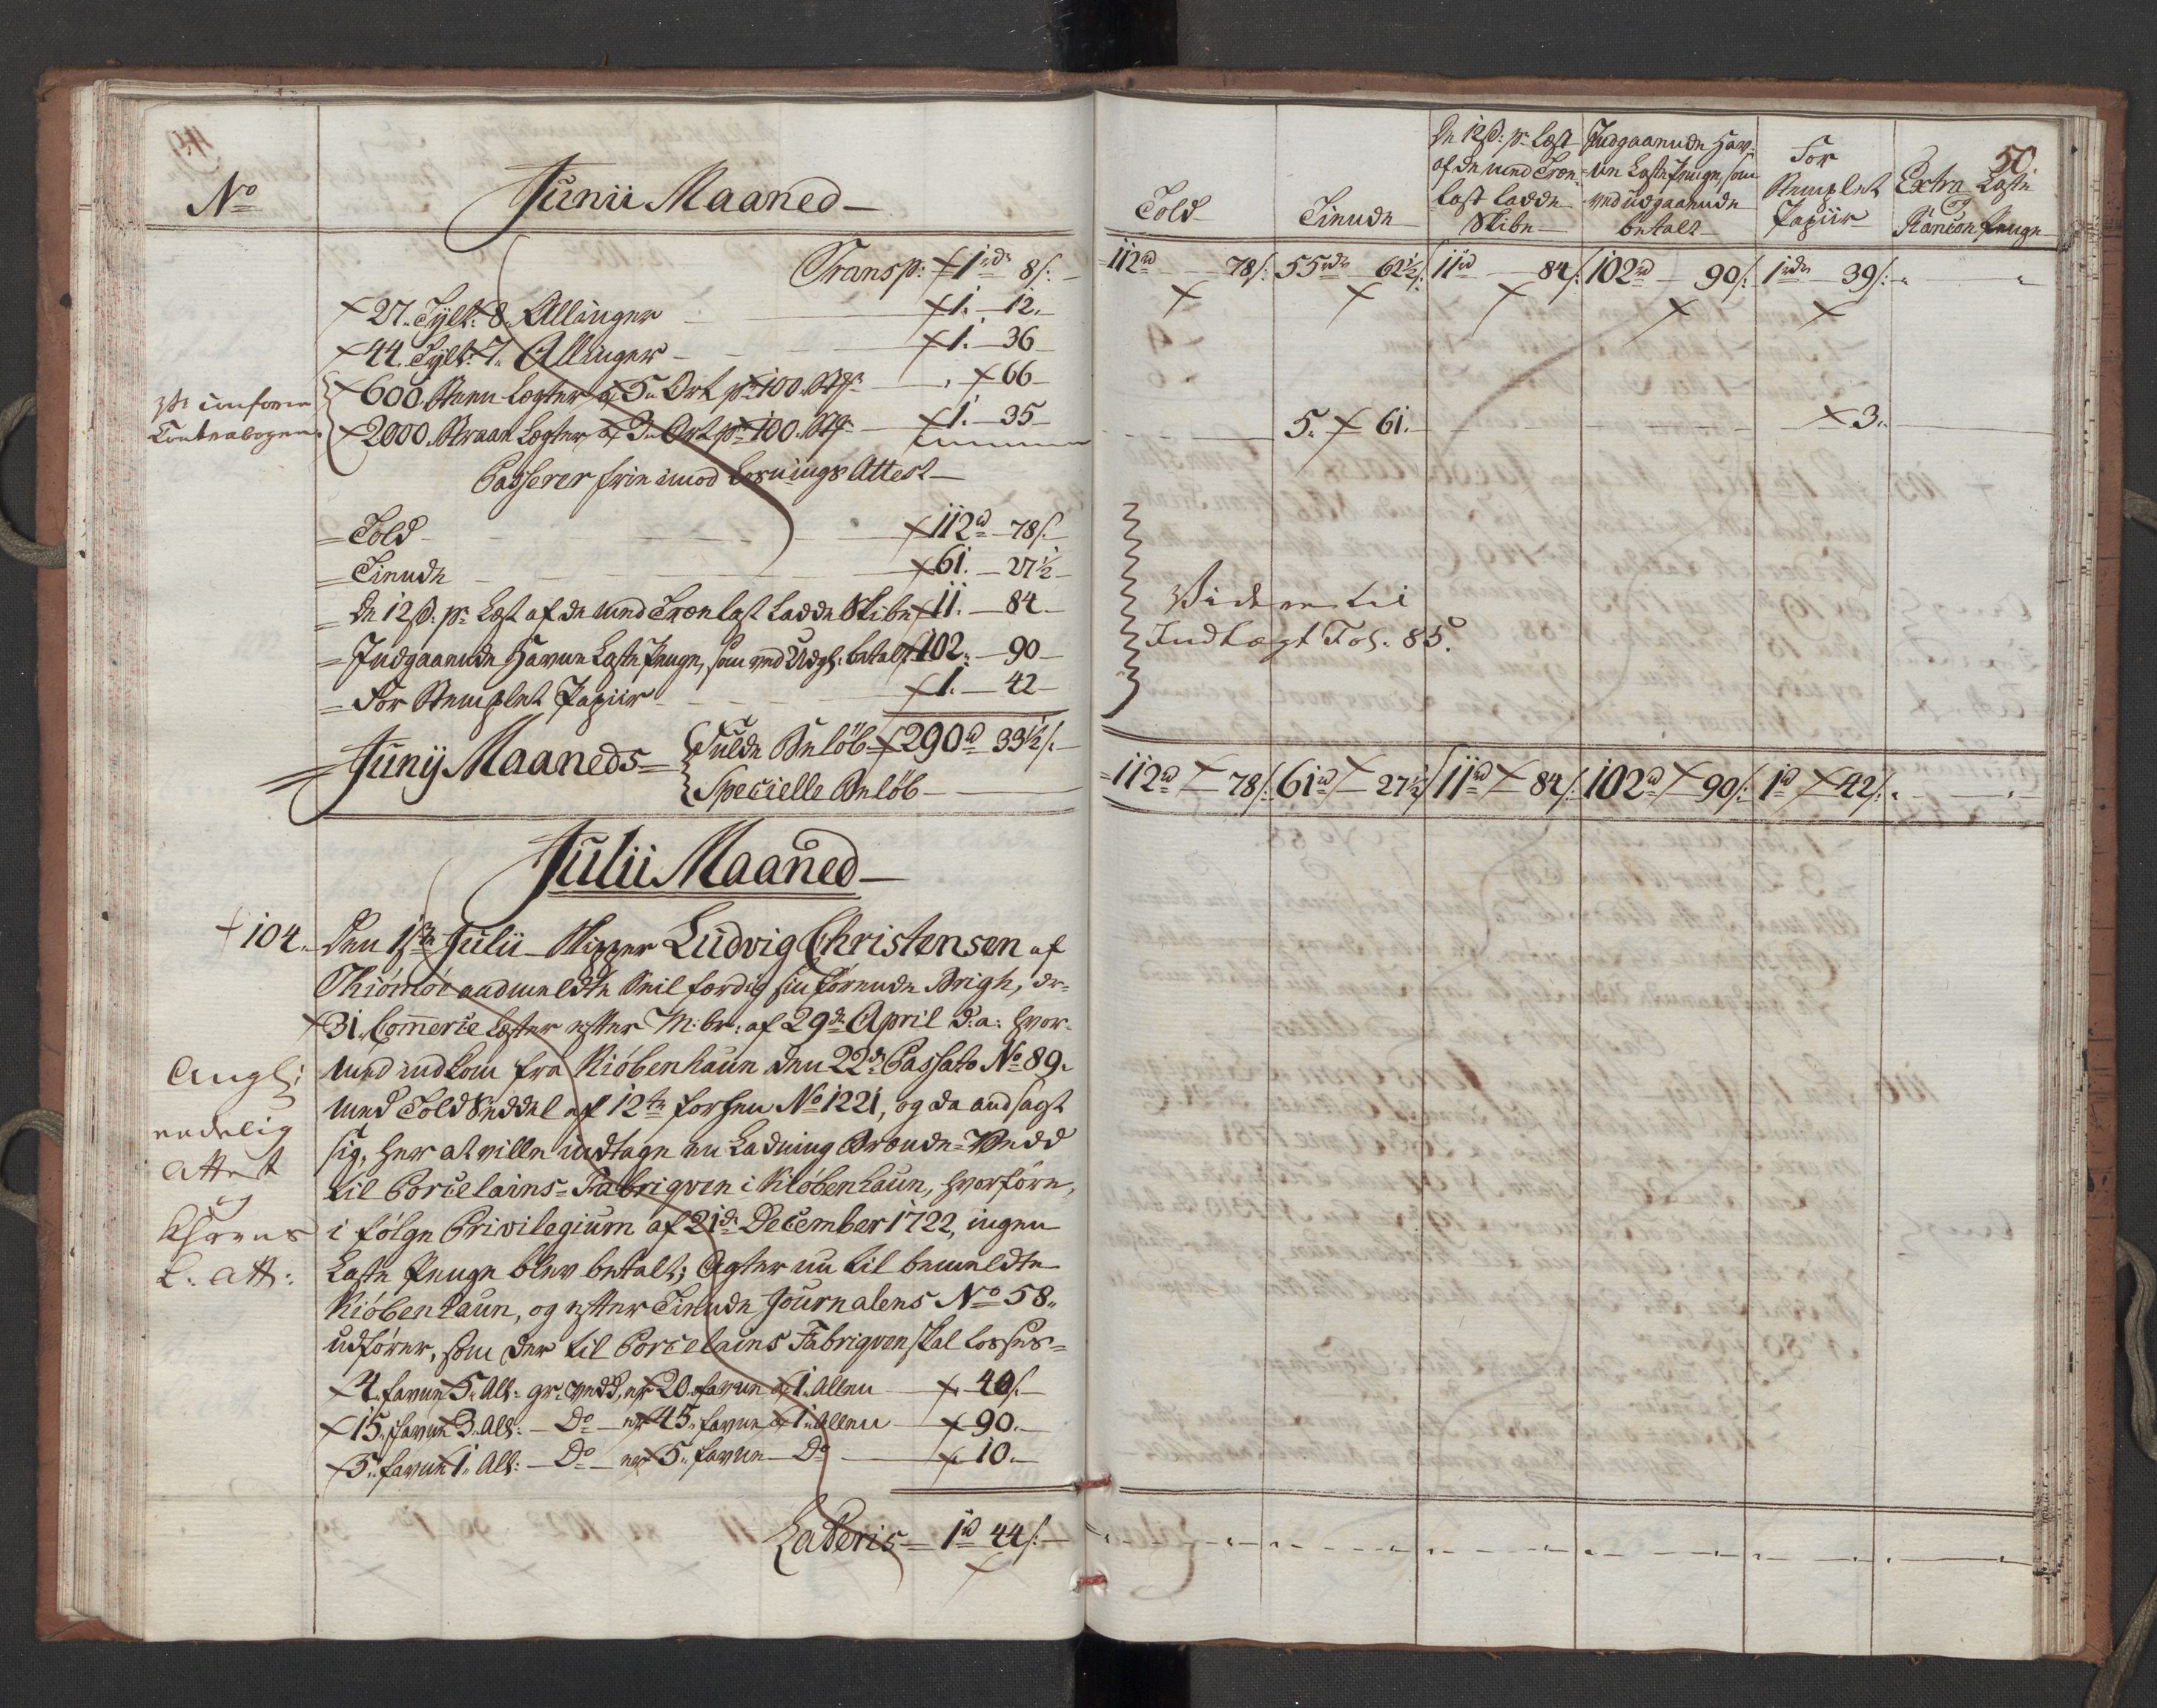 49
No
Junii Maaned
Transp: 1 rdr 8 s:
27. Tylt: 8. Allinger 1. 12.
44. Tylt: 7. Allinger 1. 36
600. Steen Legter a 5. Ort pr 100. Stk: 66
2000. Straae Legter a 3. Ort pr 100. Stk: 1. 35
conform
Contrabogen.
Passerer frie imod Losnings Attest
Told 112 rd 78 s:
Tiende 61. 27½
De 12 s: pr Læst af de med Trælast ladde Skibe 11. 84
Indgaaende Havne Læste Penge, som ved Udgl: betalt 102. 90
For Stemplet Papiir 1. 42
Junij Maaneds
Fulde Beløb 290 rd 33½ s:
Specielle Beløb
Julii Maaned
104. Den 1ste Julii Skipper Ludvig Christensen af
Thiömöe anmeldte Seil færdig sin förende Brigh, dr:
31. Com̄erce Læster efter M: br: af 29de April d: a: hvor-
med indkom fra Kiöbenhaun den 22de Passato No 89.
med Told Seddel af 12te forhen No 1221, og da andsagt
sig, her at ville indtage en Ladning Brænde-Vedd
til Porcelains-Fabriqven i Kiöbenhaun, hvorföre,
i fölge Privilegium af 21de December 1722, ingen
Læste Penge blev betalt; Agter nu til bemeldte
Kiöbenhaun, og efter Tiende Journalens No 58.
udförer, som der til Porcelains Fabriqven skal losses
Angl:
endelig
Attest
og
L: Att:
4. favne 5. All: gr: vedd, er 20. favne a 1. Allen 40 s:
15. favne 3. All: Do er 45. favne a 1. Allen 90.
5. favne 1. All: Do er 5. favne Do 10.
Lateris 1 rd 44 s:
50
Told
Tiende
De 12 s: pr Læst
af de med Træ-
last ladde
Skibe
Indgaaende Hav-
ne Læste Penge, som
ved udgaaende
betalt
For
Stemplet
Papiir
Extra Læste
og
Rancon Penge
112 rd 78 s: 55 rdr 62½ s: 11 rd 84 s: 102 rd 90 s: 1 rdr 39 s:
5. 61. 3.
Videre til
Indtægt Fol: 85.
112 rd 78 s: 61 rd 27½ 11 rd 84 s: 102 rd 90 s: 1 rd 42 s: